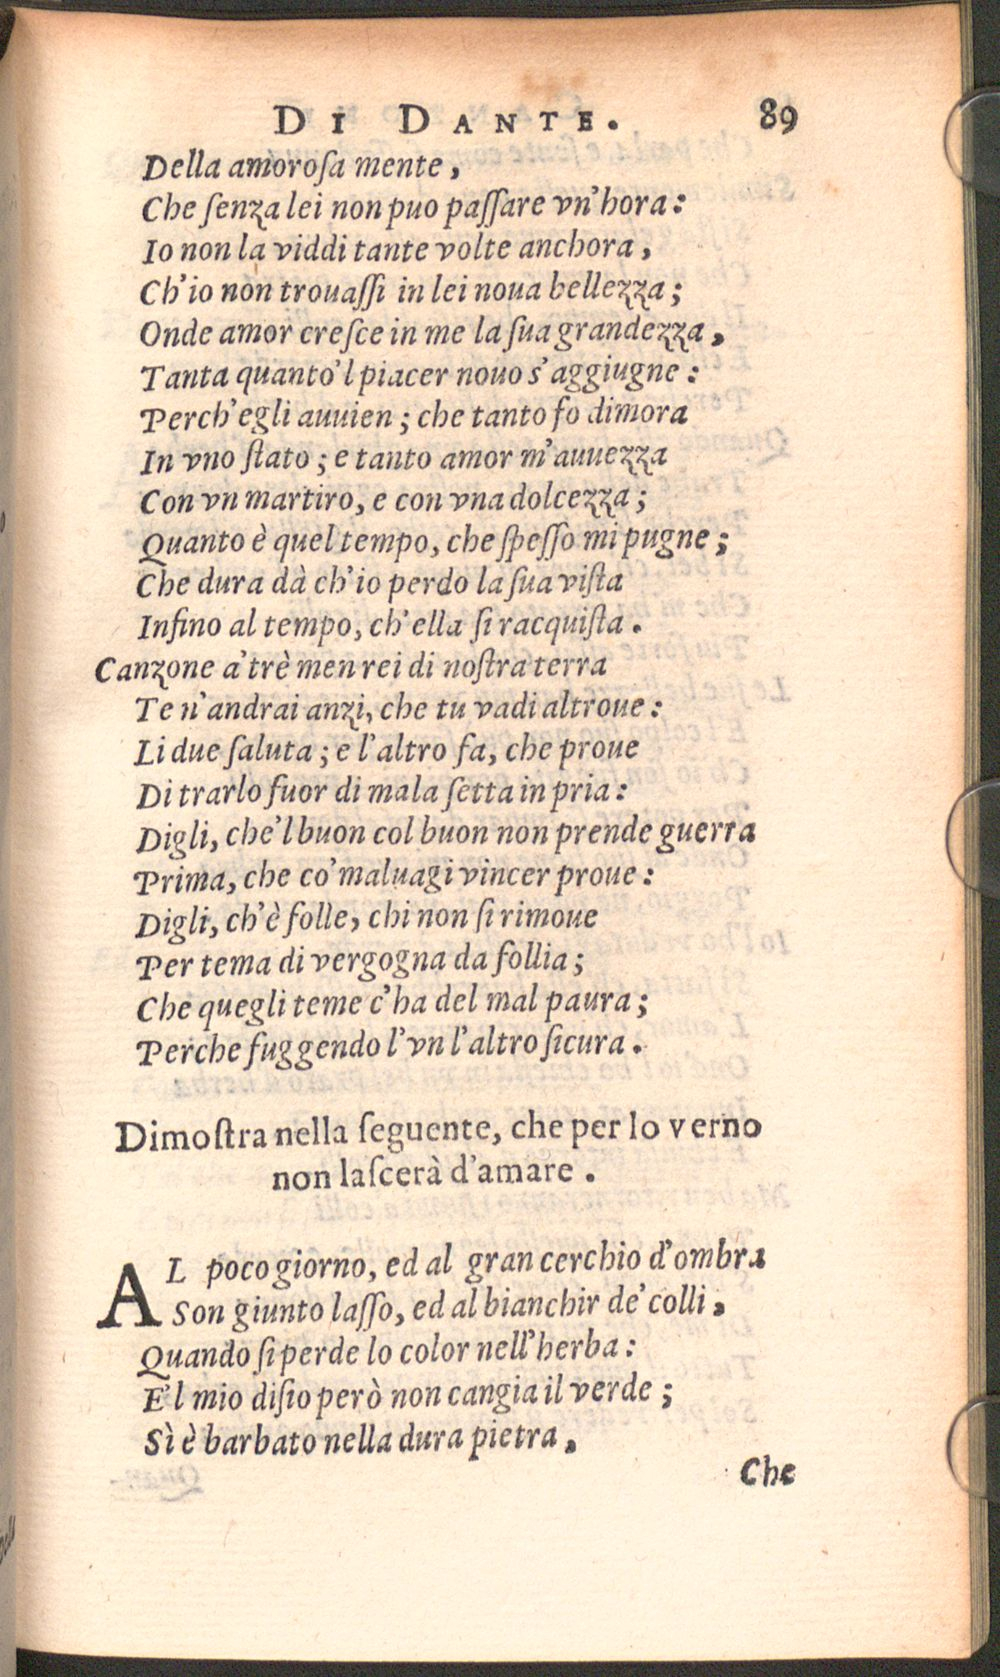 DI DANTE. 89
Della amorosa mente,
Che senza lei non puo passare vn'hora:
Io non la viddi tante volte anchora,
Ch'io non trouassi in lei noua bellezza;
Onde amor cresce in me la sua grandezza,
Tanta quanto'l piacer nouo s'aggiugne:
Perch'egli auuien; che tanto fo dimora
In vno stato; e tanto amor m'auuezza
Con vn martiro, e con vna dolcezza;
Quanto è quel tempo, che spesso mi pugne;
Che dura dà ch'io perdo la sua vista
Infino al tempo, ch'ella si racquista.
Canzone a'trè men rei di nostra terra
Te n'andrai anzi, che tu vadi altroue:
Li due saluta; e l'altro fa, che proue
Di trarlo fuor di mala setta in pria:
Digli, che'l buon col buon non prende guerra
Prima, che co'maluagi vincer proue:
Digli, ch'è folle, chi non si rimoue
Per tema di vergogna da follia;
Che quegli teme c'ha del mal paura;
Perche fuggendo l'vn l'altro sicura.
Dimostra nella seguente, che per lo verno
non lascerà d'amare.
AL poco giorno, ed al gran cerchio d'ombra
Son giunto lasso, ed al bianchir de'colli,
Quando si perde lo color nell'herba:
E'l mio disio però non cangia il verde;
Sì è barbato nella dura pietra,
Che